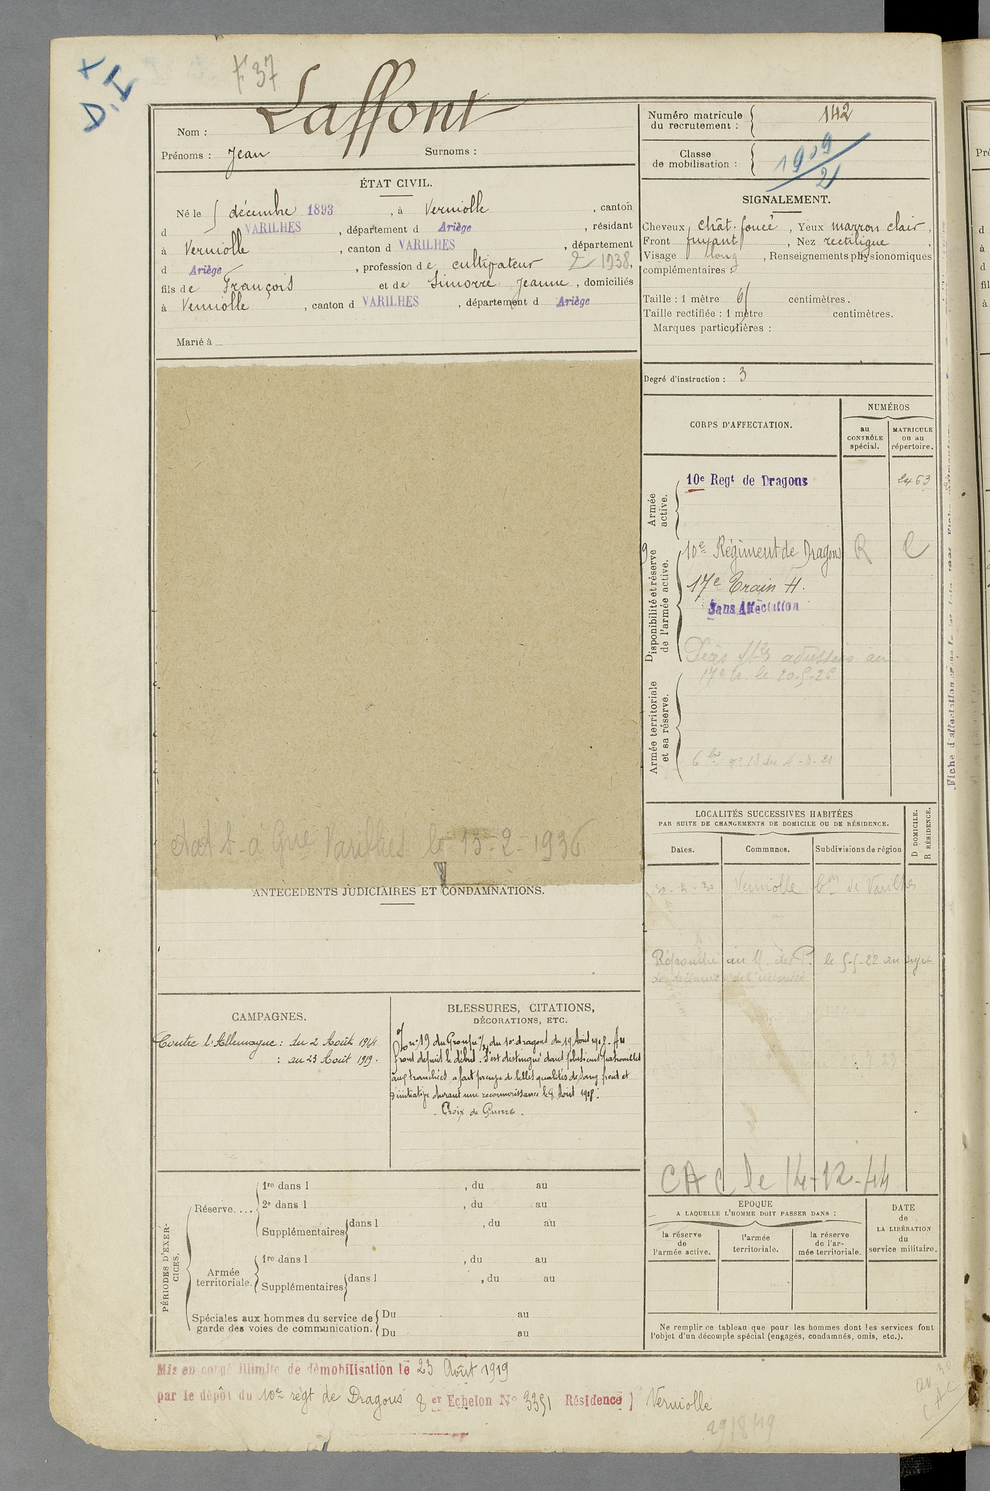 F 37
Laffont
Nom :
Prénoms : Jean Surnoms :
Numéro matricule du recrutement : 142
Classe de mobilisation : 1909/21
ÉTAT CIVIL.
Né le 5 décembre 1893, à Verniolle, canton
d VARILHES, département d Ariège, résidant
à Verniolle, canton d VARILHES, département
d Ariège, profession de cultivateur 2 1938
fils de François et de Simorre Jeanne, domiciliés
à Verniolle, canton d VARILHES, département d Ariège
Marié à
SIGNALEMENT.
Cheveux chât. foncé, Yeux marron clair,
Front fuyant, Nez rectiligne
Visage long, Renseignements physionomiques
complémentaires :
Taille : 1 mètre 61 centimètres.
Taille rectifiée : 1 mètre centimètres.
Marques particulières :
Degré d'instruction : 3
CORPS D'AFFECTATION.
NUMÉROS
au CONTRÔLE spécial.
MATRICULE ou au répertoire.
Armée active.
10e Regt de Dragons 2463
Disponibilité et réserve de l'armée active.
10e Régiment de Dragons R C
17e Train H.
Sans Affectation
17e le 20-5-26
Armée territoriale et sa réserve.
à Gne Varilhes le 13-2-1936
LOCALITÉS SUCCESSIVES HABITÉES
PAR SUITE DE CHANGEMENTS DE DOMICILE OU DE RÉSIDENCE.
D DOMICILE.
R RÉSIDENCE.
Dates. Communes. Subdivisions de région
Verniolle de Varilhes
le 5-5-22 au sujet
CAC le 14-12-44
ANTÉCÉDENTS JUDICIAIRES ET CONDAMNATIONS.
CAMPAGNES.
Contre l'Allemagne : du 2 Août 1914
: au 23 Août 1919.
BLESSURES, CITATIONS,
DÉCORATIONS, ETC.
O/ no 19 du Groupe du 10e dragons du 19 Août 1918. Au
front depuis le début. S'est distingué dans plusieurs patrouilles
aux tranchées a fait preuve de belles qualités de sang froid et
d'initiative durant une reconnaissance le 8 Août 1918.
Croix de Guerre.
PÉRIODES D'EXERCICES.
Réserve....
1re dans l , du au
2e dans l , du au
Supplémentaires dans l , du au
Armée territoriale.
1re dans l , du au
Supplémentaires dans l , du au
Spéciales aux hommes du service de garde des voies de communication.
Du au
Du au
ÉPOQUE
A LAQUELLE L'HOMME DOIT PASSER DANS :
la réserve de l'armée active.
l'armée territoriale.
la réserve de l'armée territoriale.
DATE de LA LIBÉRATION du service militaire.
Ne remplir ce tableau que pour les hommes dont les services font
l'objet d'un décompte spécial (engagés, condamnés, omis, etc.).
Mis en congé illimité de démobilisation le 23 Août 1919
par le dépôt du 10e régt de Dragons 8 er Echelon No 3351 Résidence ) Verniolle
29/8/49